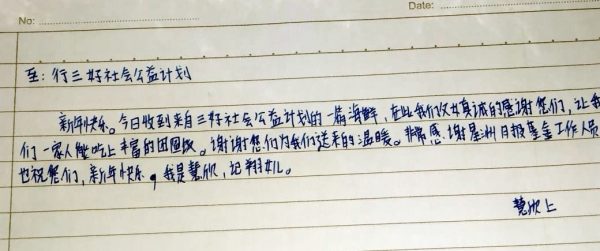 No:
Date:
至：行三好社会公益计划
新年快乐。今日收到来自三好社会公益计划的一箱海鲜，在此我们致以真诚的感谢您们，让我
们一家人能吃上丰富的团圆饭。谢谢您们为我们送来的温暖。非常感谢星洲日报基金工作人员
也祝您们，新年快乐，我是慧欣，记翔
慧欣上